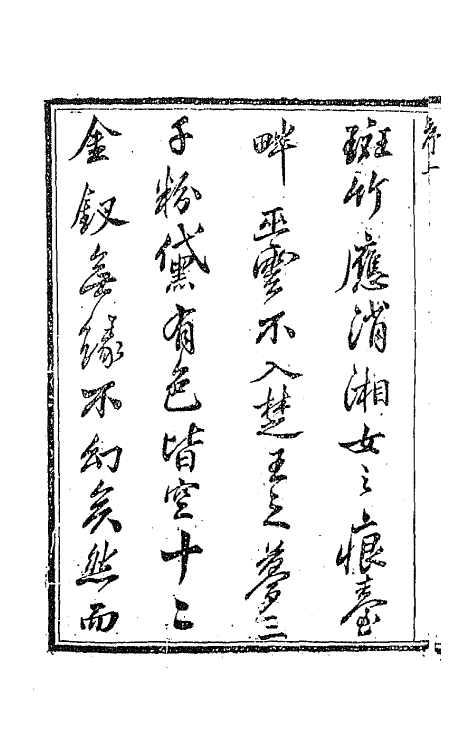 卷上
斑竹應消湘女之痕臺
畔巫雲不入楚王之夢三
千粉黛有色皆空十二
金釵無緣不幻矣然而